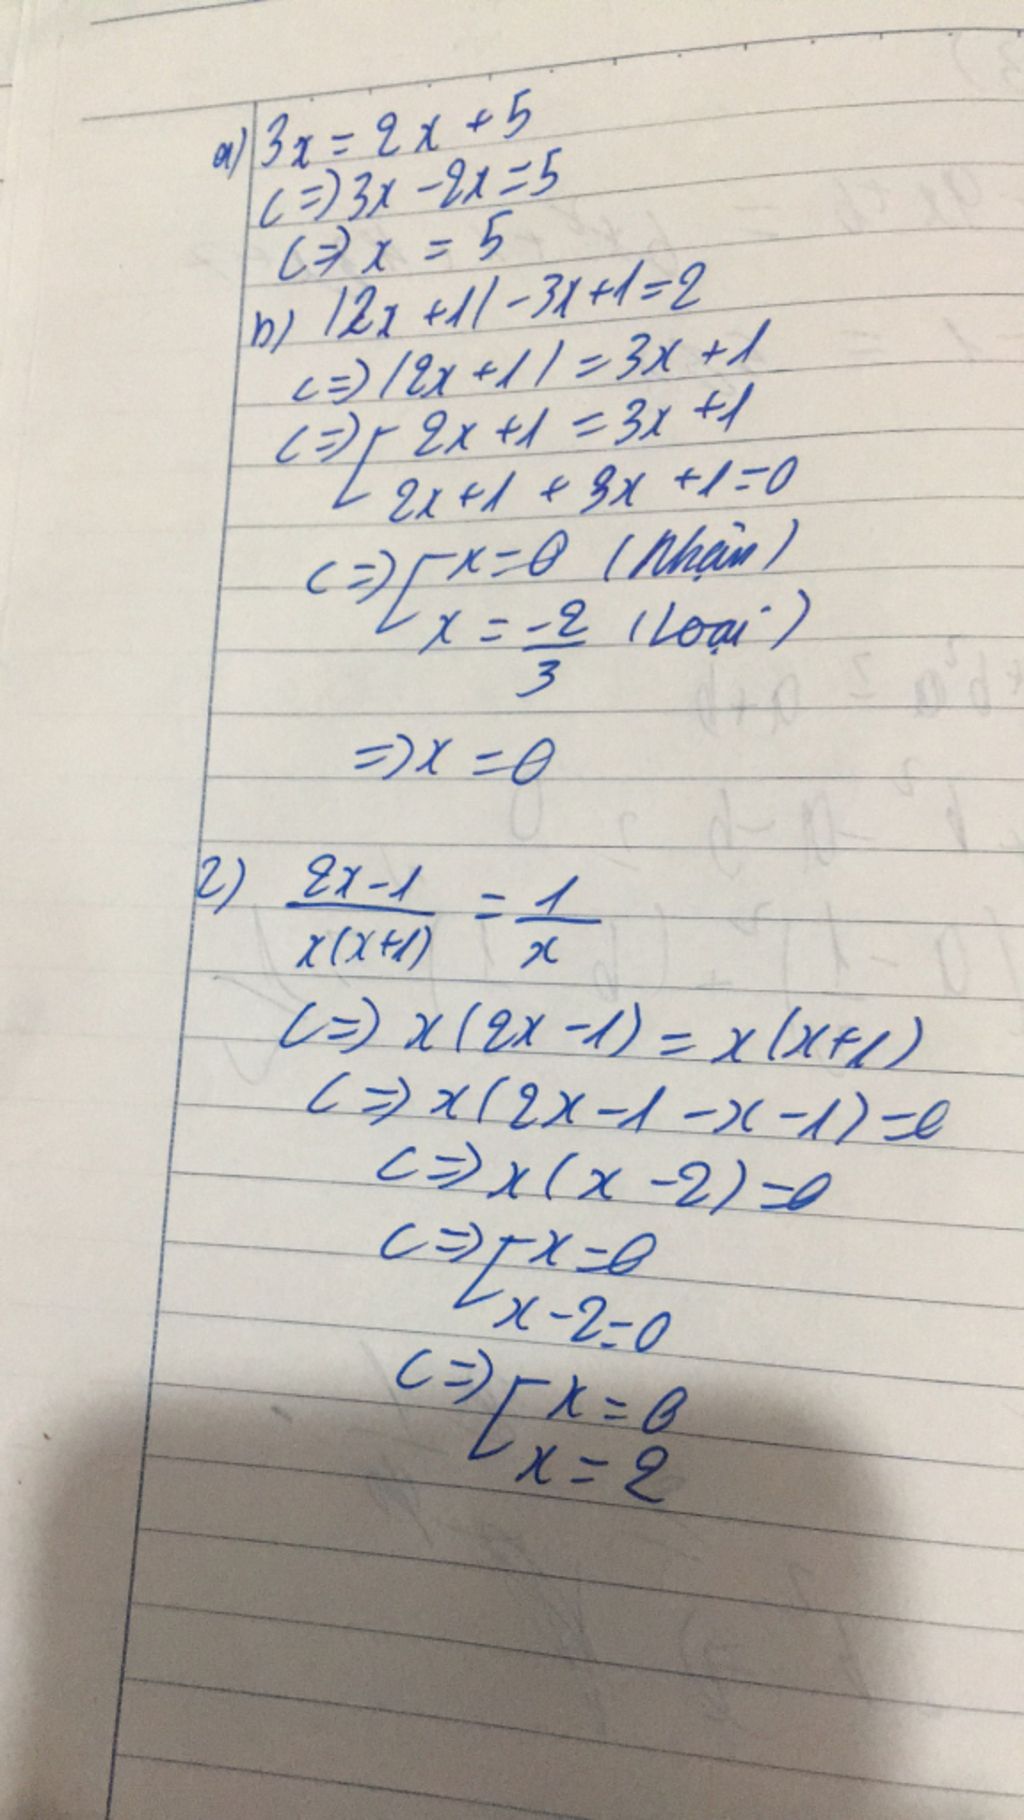 a) 3x = 2x + 5
<=> 3x - 2x = 5
<=> x = 5
b) |2x + 1| - 3x + 1 = 2
<=> |2x + 1| = 3x + 1
<=> [ 2x + 1 = 3x + 1
2x + 1 + 3x + 1 = 0
<=> [ x = 0 (Nhận)
x = -2/3 (Loại)
=> x = 0
2) (2x - 1)/(x(x+1)) = 1/x
<=> x(2x - 1) = x(x+1)
<=> x(2x - 1 - x - 1) = 0
<=> x(x - 2) = 0
<=> [ x = 0
x - 2 = 0
<=> [ x = 0
x = 2